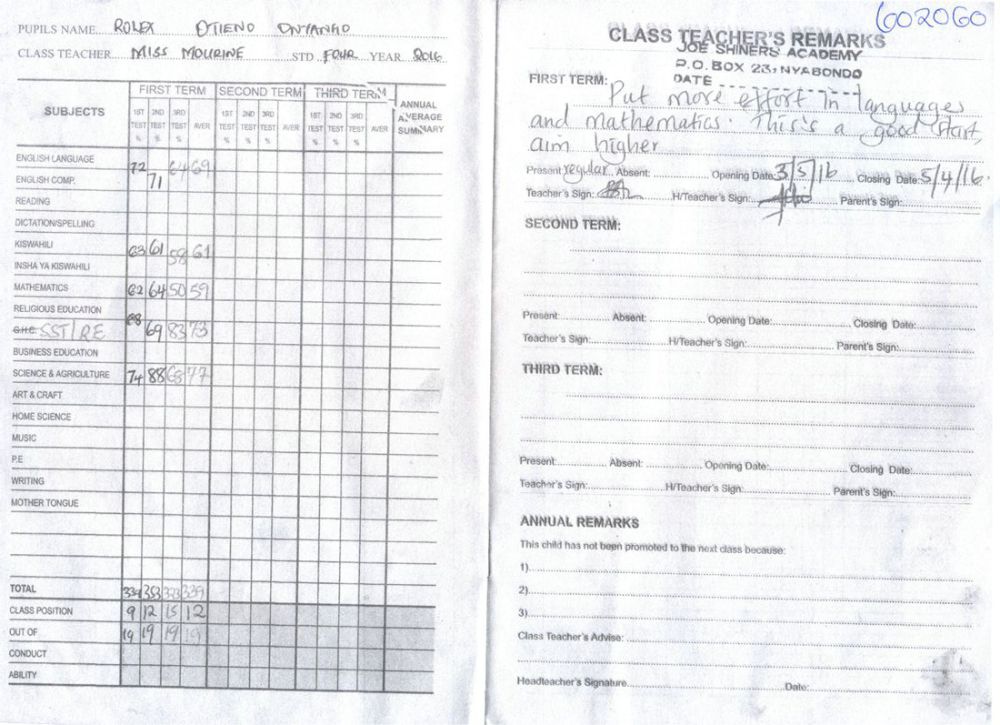 PUPILS NAME ROLEX OTIENO ONYANGO
CLASS TEACHER MISS MOURINE STD FOUR YEAR 2016
SUBJECTS FIRST TERM SECOND TERM THIRD TERM ANNUAL AVERAGE SUMMARY
1ST TEST % 2ND TEST % 3RD TEST % AVER 1ST TEST % 2ND TEST % 3RD TEST % AVER 1ST TEST % 2ND TEST % 3RD TEST % AVER
ENGLISH LANGUAGE 72 71 64 69
ENGLISH COMP.
READING
DICTATION/SPELLING
KISWAHILI 63 61 59 61
INSHA YA KISWAHILI
MATHEMATICS 62 64 50 59
RELIGIOUS EDUCATION
G.H.C. SST/RE 69 83 73
BUSINESS EDUCATION
SCIENCE & AGRICULTURE 74 88 68 77
ART & CRAFT
HOME SCIENCE
MUSIC
P.E
WRITING
MOTHER TONGUE
TOTAL 353 339
CLASS POSITION 9 12 15 12
OUT OF 19 19 19 19
CONDUCT
ABILITY
602060
CLASS TEACHER'S REMARKS
JOE SHINERS ACADEMY
P.O. BOX 23, NYABONDO
DATE
FIRST TERM: Put more effort in languages
and mathematics. This's a good start,
aim higher
Present regular Absent: Opening Date: 3/5/16 Closing Date: 5/4/16.
Teacher's Sign: H/Teacher's Sign: Parent's Sign:
SECOND TERM:
Present Absent: Opening Date: Closing Date:
Teacher's Sign: H/Teacher's Sign: Parent's Sign:
THIRD TERM:
Present: Absent: Opening Date: Closing Date:
Teacher's Sign: H/Teacher's Sign: Parent's Sign:
ANNUAL REMARKS
This child has not been promoted to the next class because:
1)
2)
3)
Class Teacher's Advise:
Headteacher's Signature Date: